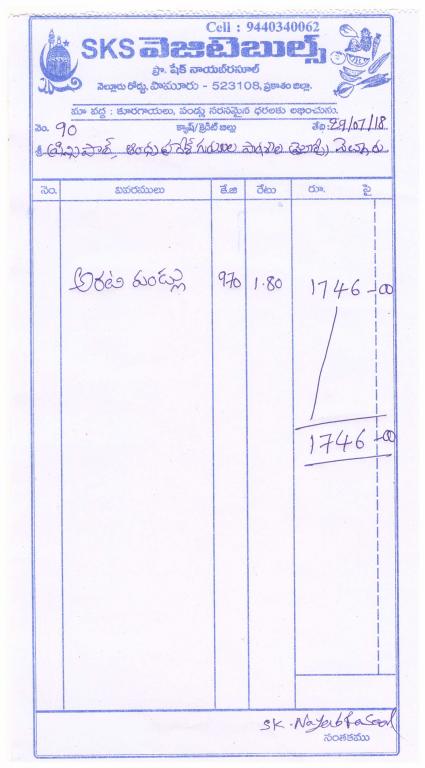 Cell : 9440340062
SKS వెజిటెబుల్స్
ప్రొ. షేక్ నాయబ్‌రసూల్
నెల్లూరు రోడ్డు, పామూరు - 523108, ప్రకాశం జిల్లా.
మా వద్ద : కూరగాయలు, పండ్లు సరసమైన ధరలకు లభించును.
నెం. 90 క్యాష్/క్రెడిట్ బిల్లు తేది: 29/07/18
శ్రీ ప్రిన్సిపాల్,
నెం. వివరములు కే.జి రేటు రూ. పై
అరటి పండ్లు 970 1.80 1746-00
1746-00
SK. Nayeb Rasool
సంతకము